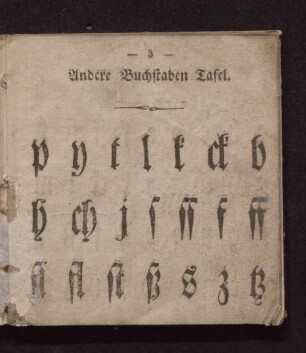 — 3 —
Andere Buchstaben Tafel.
p y t l k ck b
h ch j ſ ſſ f ff
fl ſt ß s z tz